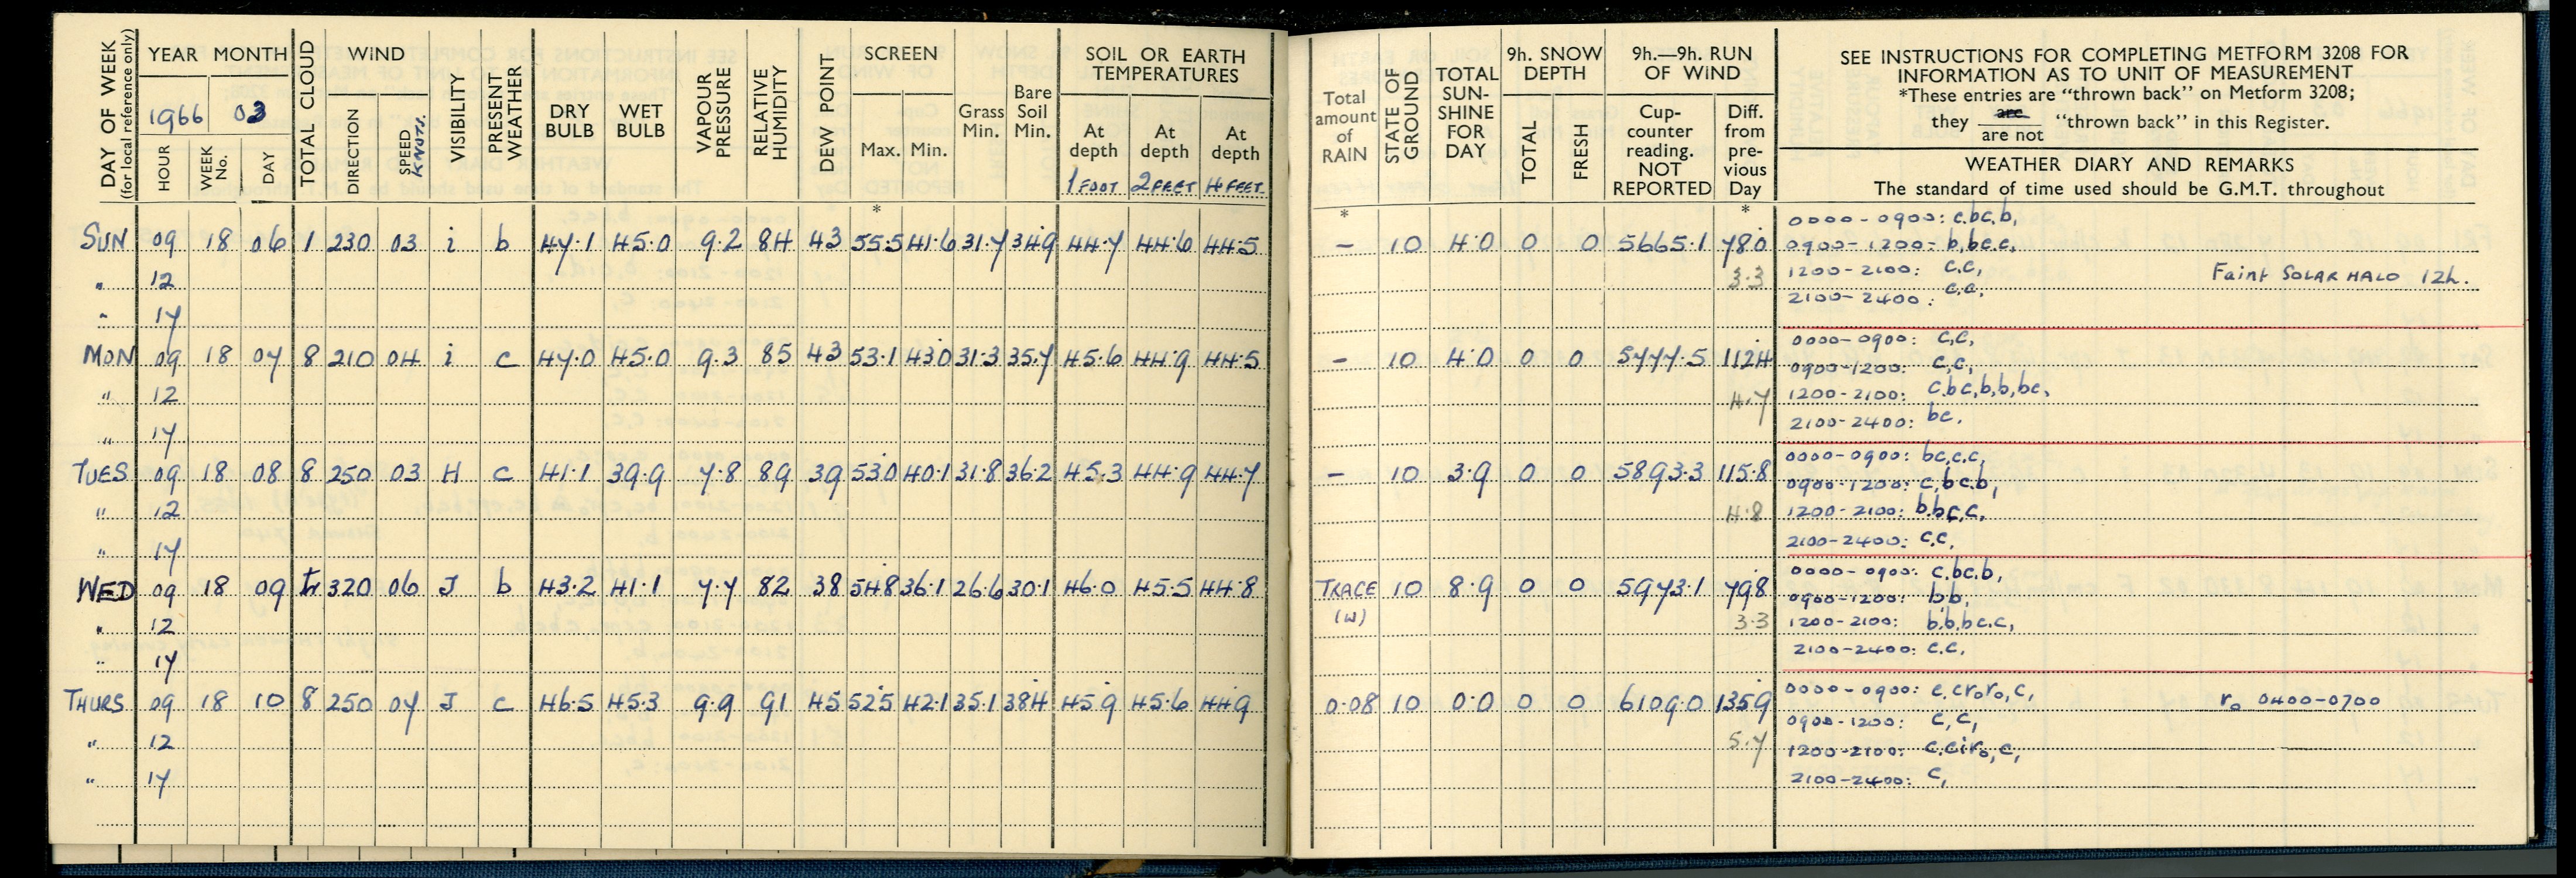 DAY OF WEEK (for local reference only) YEAR MONTH TOTAL CLOUD WIND VISIBILITY PRESENT WEATHER DRY BULB WET BULB VAPOUR PRESSURE RELATIVE HUMIDITY DEW POINT SCREEN Grass Min. Bare Soil Min. SOIL OR EARTH TEMPERATURES
1966 03
HOUR WEEK No. DAY DIRECTION SPEED KNOTS. Max. Min. At depth At depth At depth
1 FOOT 2 FEET 4 FEET
Total amount of RAIN STATE OF GROUND TOTAL SUN-SHINE FOR DAY 9h. SNOW DEPTH 9h.—9h. RUN OF WIND
TOTAL FRESH Cup-counter reading. NOT REPORTED Diff. from pre-vious Day
SEE INSTRUCTIONS FOR COMPLETING METFORM 3208 FOR
INFORMATION AS TO UNIT OF MEASUREMENT
*These entries are "thrown back" on Metform 3208;
they are / are not "thrown back" in this Register.
WEATHER DIARY AND REMARKS
The standard of time used should be G.M.T. throughout
* * *
SUN 09 18 06 1 230 03 i b 47.1 45.0 9.2 84 43 55.5 41.6 31.7 34.9 44.7 44.6 44.5 – 10 4.0 0 0 5665.1 78.0
0000-0900: c.bc.b,
0900-1200- b,bc.c,
" 12 3.3 1200-2100: c.c, Faint SOLAR HALO 12h.
2100-2400: c.c.
" 17
MON 09 18 07 8 210 04 i c 47.0 45.0 9.3 85 43 53.1 43.0 31.3 35.7 45.6 44.9 44.5 – 10 4.0 0 0 5777.5 112.4
0000-0900: c,c,
0900-1200: c,c,
" 12 4.7 1200-2100: c.bc,b,b,bc,
2100-2400: bc.
" 17
TUES 09 18 08 8 250 03 H c 41.1 39.9 7.8 89 39 53.0 40.1 31.8 36.2 45.3 44.9 44.7 – 10 3.9 0 0 5893.3 115.8
0000-0900: bc,c.c,
0900-1200: c,bc.b,
" 12 4.8 1200-2100: b.bc,c,
2100-2400: c,c,
" 17
WED 09 18 09 tr 320 06 J b 43.2 41.1 7.7 82 38 54.8 36.1 26.6 30.1 46.0 45.5 44.8 TRACE (W) 10 8.9 0 0 5973.1 79.8
0000-0900: c.bc.b,
0900-1200: b.b,
" 12 3.3 1200-2100: b.b.bc.c,
2100-2400: c.c,
" 17
THURS 09 18 10 8 250 07 J c 46.5 45.3 9.9 91 45 52.5 42.1 35.1 38.4 45.9 45.6 44.9 0.08 10 0.0 0 0 6109.0 135.9
0000-0900: c,croro,c, ro 0400-0700
0900-1200: c,c,
" 12 5.7 1200-2100: c.ciro,c,
2100-2400: c,
" 17